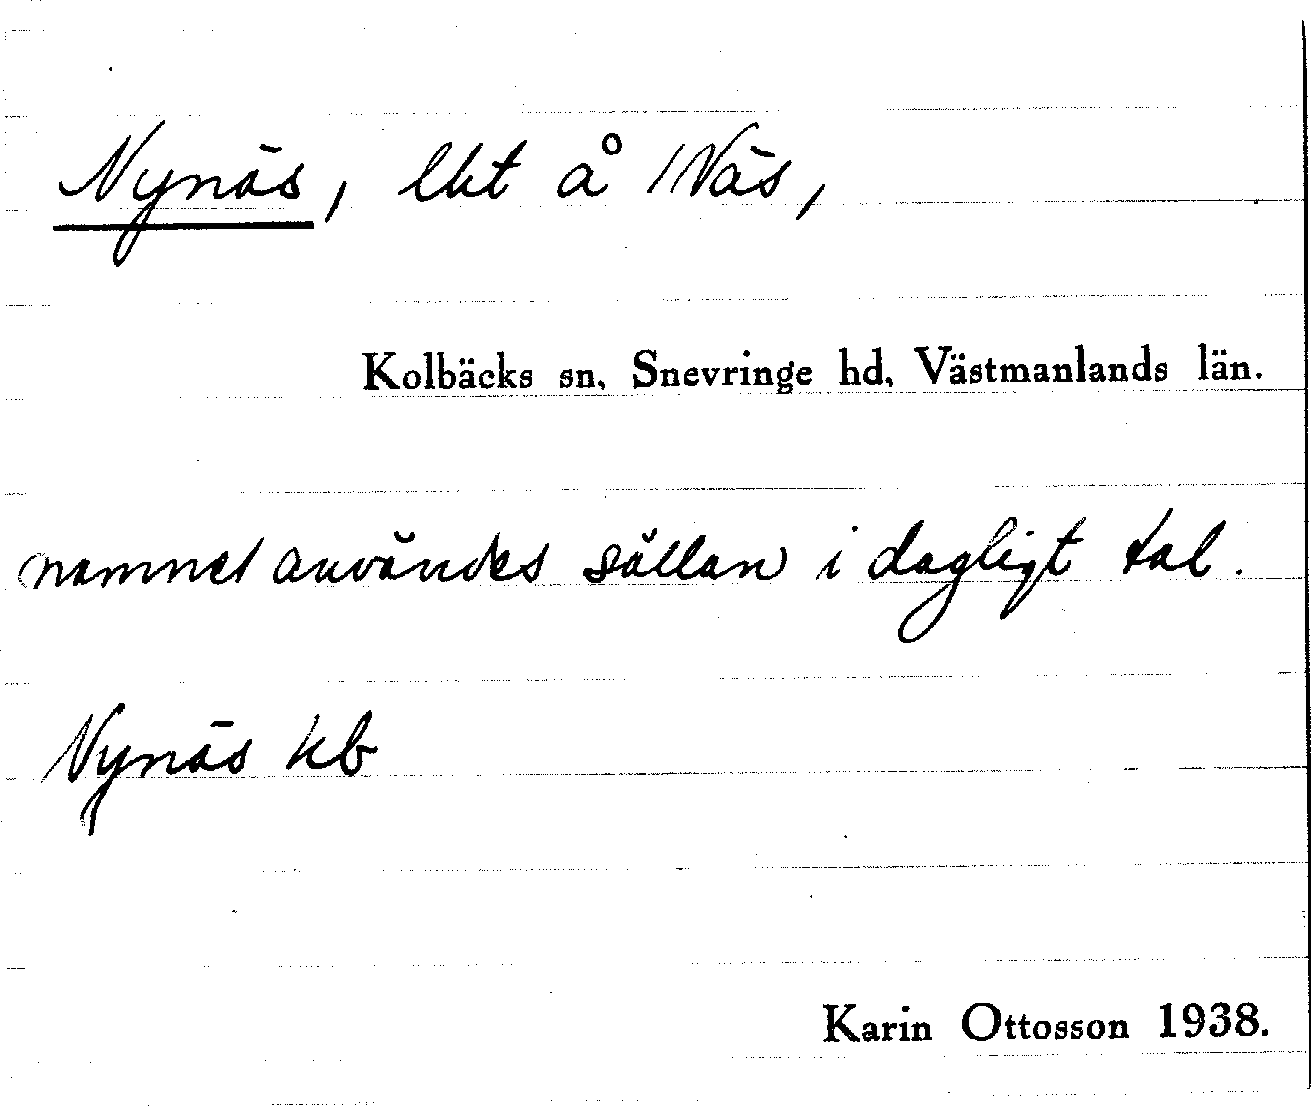 Nynäs, lht å Näs,
Kolbäcks sn, Snevringe hd, Västmanlands län.
namnet användes sällan i dagligt tal.
Nynäs kb
Karin Ottosson 1938.